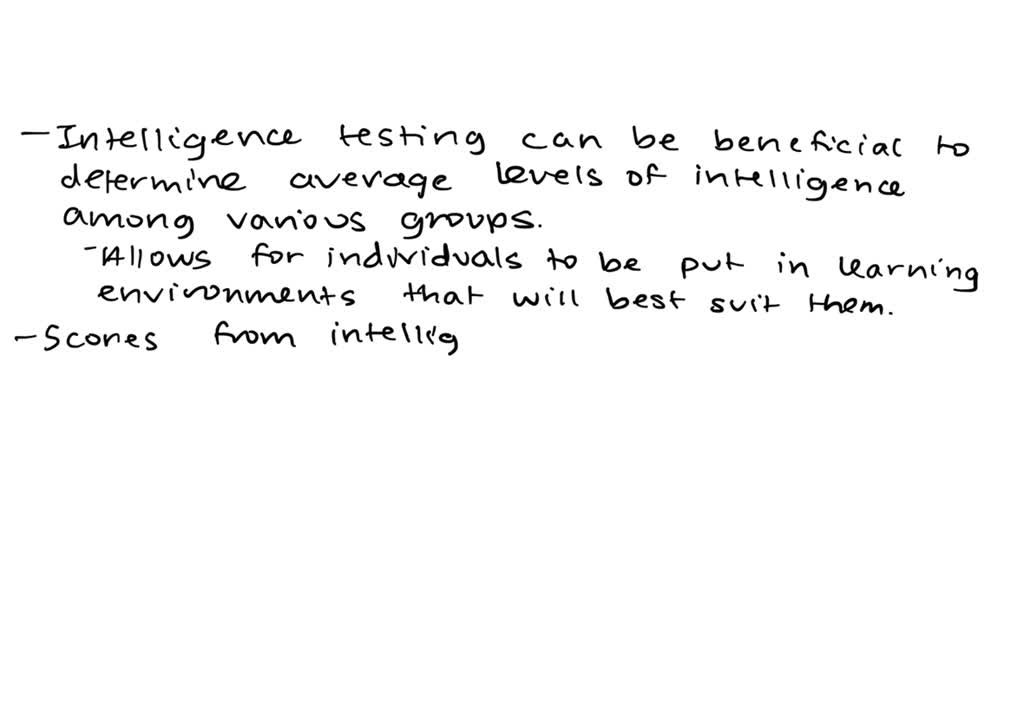 - Intelligence testing can be beneficial to
determine average levels of intelligence
among various groups.
- Allows for individuals to be put in learning
environments that will best suit them.
- Scores from intellig